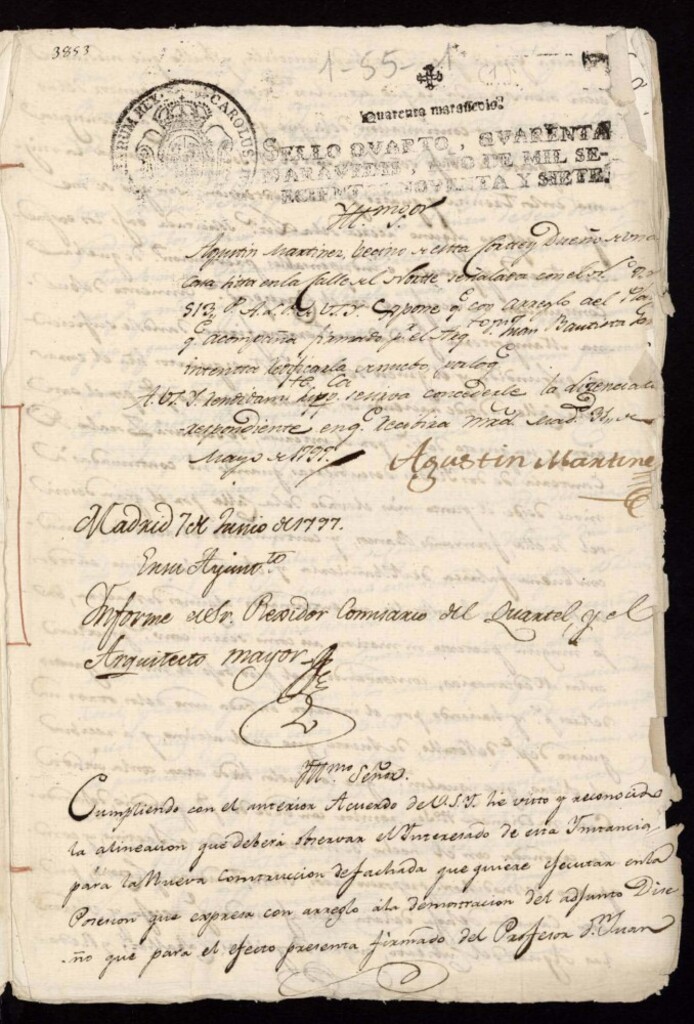 3853
1-55-1
Quarenta maravedis.
HISPANIARUM REX. CAROLUS IV
SELLO QVARTO, QVARENTA
MARAVEDIS, AÑO DE MIL SE-
TECIENTOS NOVENTA Y SIETE.
Yll.mo S.or
Agustin Martinez, Vecino de esta Corte y Dueño de una
Casa sita en la Calle del Norte señalada con el n.o
513, P. A. L. P. de V.S.Y. Expone q.e con arreglo al
q.e acompaña firmado p.r el Arq.to D.n Juan Bautista
intenta edificarla de nuevo, por lo q.e
A V.S.Y. rendidam.te sup.ca se sirva concederle la licencia
respondiente en q.e recibira mrd. Mad.d 31 de
Mayo de 1797.
Agustin Martine
Madrid 7 de Junio de 1797.
En su Ayunt.to
Informe el Sr. Rexidor Comisario del Quartel, y el
Arquitecto mayor
Yll.mo Señor.
Cumpliendo con el anterior Acuerdo de V.S.Y. he visto y reconocido
la alineacion que deberá observar el Ynteresado de esta Ynstancia,
para la Nueva Construccion de fachada que quiere ejecutar en la
Posesion que expresa con arreglo á la demostracion del adjunto Dise
ño que para el efecto presenta firmado del Profesor D.n Juan